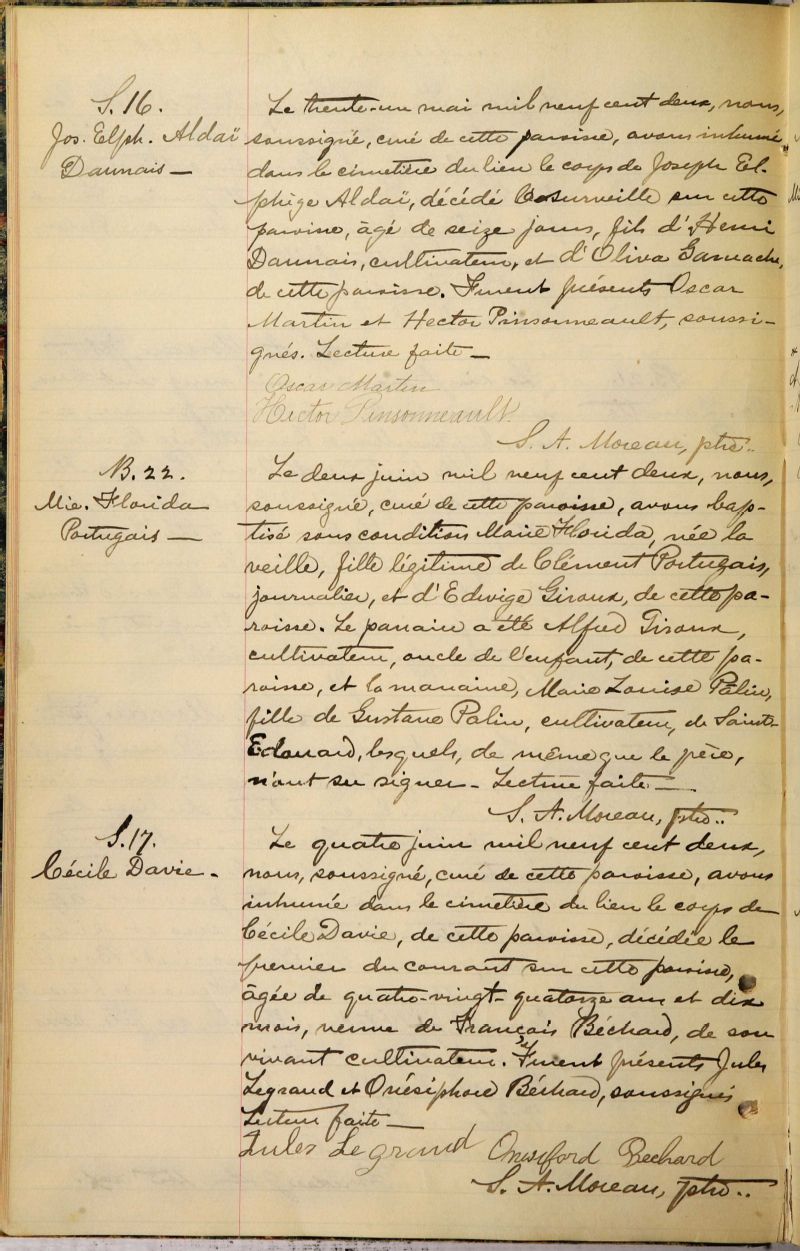 S. 16.
Jos. Elph. Aldaï
Daunais —
Le trente-un mai mil neuf cent deux, nous,
soussigné, curé de cette paroisse, avons inhumé
dans le cimetière du lieu le corps de Joseph El-
phège Aldaï, décédé la surveille sur cette
paroisse, âgé de seize jours, fils d'Henri
Daunais, cultivateur, et d'Oliva Gamache,
de cette paroisse. Furent présents Oscar
Martin et Hector Pinsonneault, soussi-
gnés. Lecture faite —
Oscar Martin
Hector Pinsonneault.
S. A. Moreau, ptre..
B. 22.
Mie. Florida
Portugais —
Le deux juin mil neuf cent deux, nous,
soussigné, curé de cette paroisse, avons bap-
tisé sous condition Marie Florida, née la
veille, fille légitime de Clément Portugais,
journalier, et d'Edwige Giroux, de cette pa-
roisse. Le parrain a été Alfred Giroux,
cultivateur, oncle de l'enfant, de cette pa-
roisse, et la marraine, Marie Louise Palin,
fille de Gustave Palin, cultivateur, de Saint-
Edouard, lesquels, de même que le père,
n'ont su signer - Lecture faite —
S. A. Moreau, ptre..
S. 17.
Cécile Davie -
Le quatre juin mil neuf cent deux,
nous, soussigné, curé de cette paroisse, avons
inhumé dans le cimetière du lieu le corps de
Cécile Davie, de cette paroisse, décédée le
premier du courant sur cette paroisse,
âgée de quatre-vingt-quatorze ans et dix
mois, veuve de François Béchard, de son
vivant cultivateur. Furent présents Jules
Legrand et Onésiphore Béchard, soussignés
Lecture faite —
Jules Legrand Onesiford Bechard
S. A. Moreau, ptre..